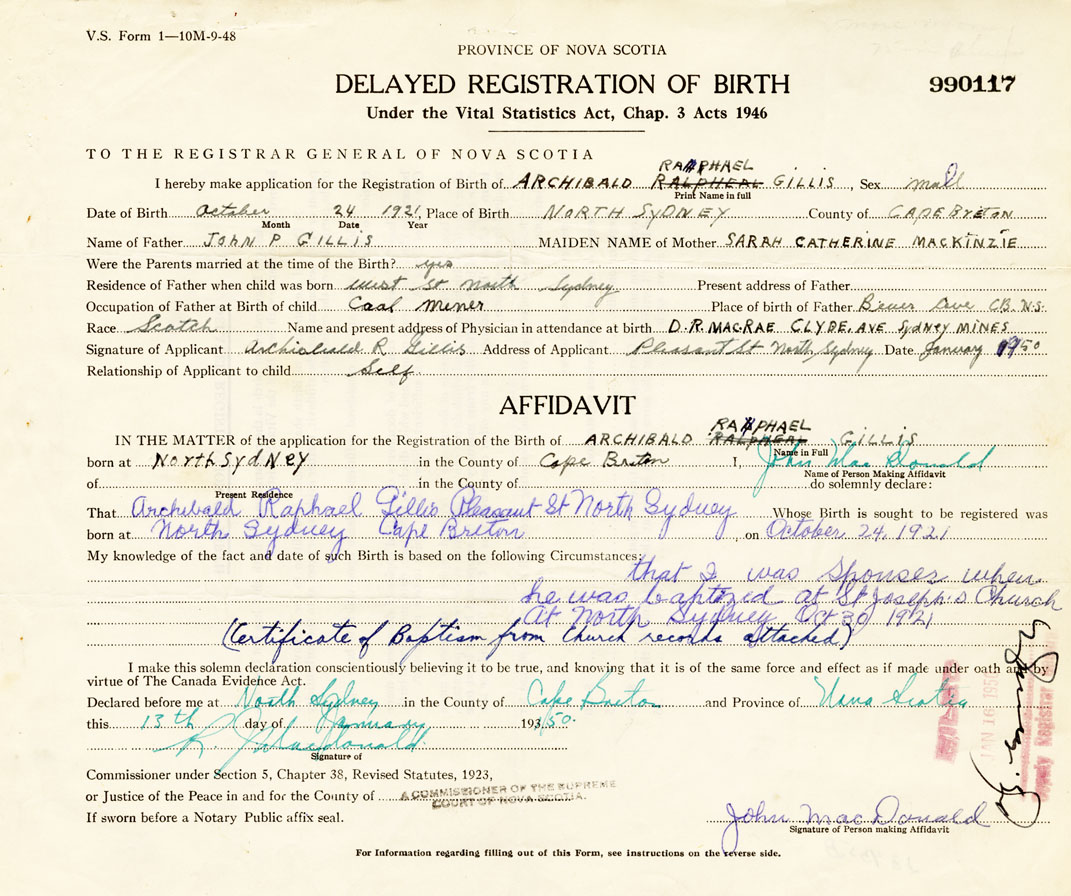 V.S. Form 1—10M-9-48
PROVINCE OF NOVA SCOTIA
DELAYED REGISTRATION OF BIRTH
990117
Under the Vital Statistics Act, Chap. 3 Acts 1946
TO THE REGISTRAR GENERAL OF NOVA SCOTIA
RAPHAEL
I hereby make application for the Registration of Birth of ARCHIBALD RALPHEAL GILLIS, Sex male
Print Name in full
Date of Birth October 24 1921, Place of Birth NORTH SYDNEY County of CAPE BRETON
Month Date Year
Name of Father JOHN P GILLIS MAIDEN NAME of Mother SARAH CATHERINE MACKINZIE
Were the Parents married at the time of the Birth? yes
Residence of Father when child was born West St North Sydney Present address of Father
Occupation of Father at Birth of child Coal Miner Place of birth of Father Cove C.B. N.S.
Race Scotch Name and present address of Physician in attendance at birth D.R. MACRAE CLYDE. AVE SYDNEY MINES
Signature of Applicant Archiobald R Gillis Address of Applicant Pleasant St North Sydney Date January 1950
Relationship of Applicant to child Self
AFFIDAVIT
RAPHAEL
IN THE MATTER of the application for the Registration of the Birth of ARCHIBALD RALPHEAL GILLIS
Name in Full
born at NORTH SYDNEY in the County of Cape Briton I, John MacDonald
Name of Person Making Affidavit
of in the County of do solemnly declare:
Present Residence
That Archibald Raphael Gillis Pleasant St North Sydney Whose Birth is sought to be registered was
born at North Sydney Cape Briton, on October 24, 1921
My knowledge of the fact and date of such Birth is based on the following Circumstances:
that I was Sponser when
he was baptized at St Joseph's Church
At North Sydney Oct 30 1921
(Certificate of Baptism from Church records attached)
I make this solemn declaration conscientiously believing it to be true, and knowing that it is of the same force and effect as if made under oath and by
virtue of The Canada Evidence Act.
Declared before me at North Sydney in the County of Cape Breton and Province of Nova Scotia
this 13th day of January 193/50.
R. J. Macdonald
Signature of
Commissioner under Section 5, Chapter 38, Revised Statutes, 1923,
or Justice of the Peace in and for the County of A COMMISSIONER OF THE SUPREME
COURT OF NOVA SCOTIA.
If sworn before a Notary Public affix seal.
John MacDonald
Signature of Person making Affidavit
For Information regarding filling out of this Form, see instructions on the reverse side.
JAN 16 1950
Deputy Registrar